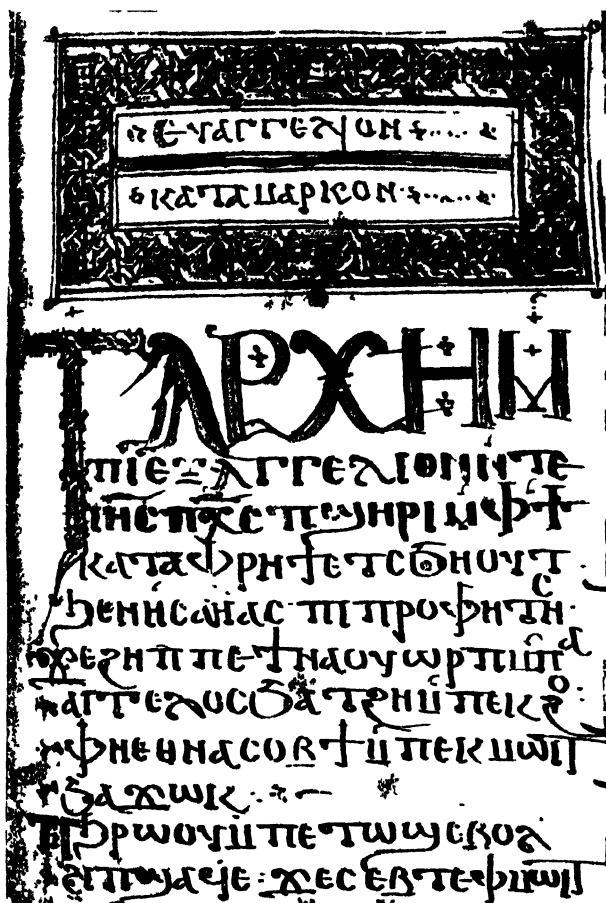 ⲉⲩⲁⲅⲅⲉⲗⲓⲟⲛ
ⲕⲁⲧⲁ ⲙⲁⲣⲕⲟⲛ
ⲧⲁⲣⲭⲏ ⲙ
ⲡⲓⲉⲩⲁⲅⲅⲉⲗⲓⲟⲛ ⲛ̀ⲧⲉ
ⲓⲏ̅ⲥ̅ ⲡⲭ̅ⲥ̅ ⲡϣⲏⲣⲓ ⲙ̀ⲫϯ
ⲕⲁⲧⲁ ⲫⲣⲏϯ ⲉⲧⲥϧⲏⲟⲩⲧ
ϧⲉⲛ ⲏⲥⲁⲏⲁⲥ ⲡⲓⲡⲣⲟⲫⲏⲧⲏⲥ
ϫⲉ ϩⲏⲡⲡⲉ ϯⲛⲁⲟⲩⲱⲣⲡ ⲙ̀ⲡⲁ
ⲁⲅⲅⲉⲗⲟⲥ ϧⲁⲧϩⲏ ⲙ̀ⲡⲉⲕϩⲟ:
ⲫⲏ ⲉⲑⲛⲁⲥⲟⲃϯ ⲙ̀ⲡⲉⲕⲙⲱⲓⲧ
ϧⲁϫⲱⲕ
ⲡϧⲣⲱⲟⲩ ⲙ̀ⲡⲉⲧⲱϣ ⲉⲃⲟⲗ
ϩⲓ ⲡϣⲁϥⲉ: ϫⲉ ⲥⲉⲃⲧⲉ ⲫⲙⲱⲓⲧ